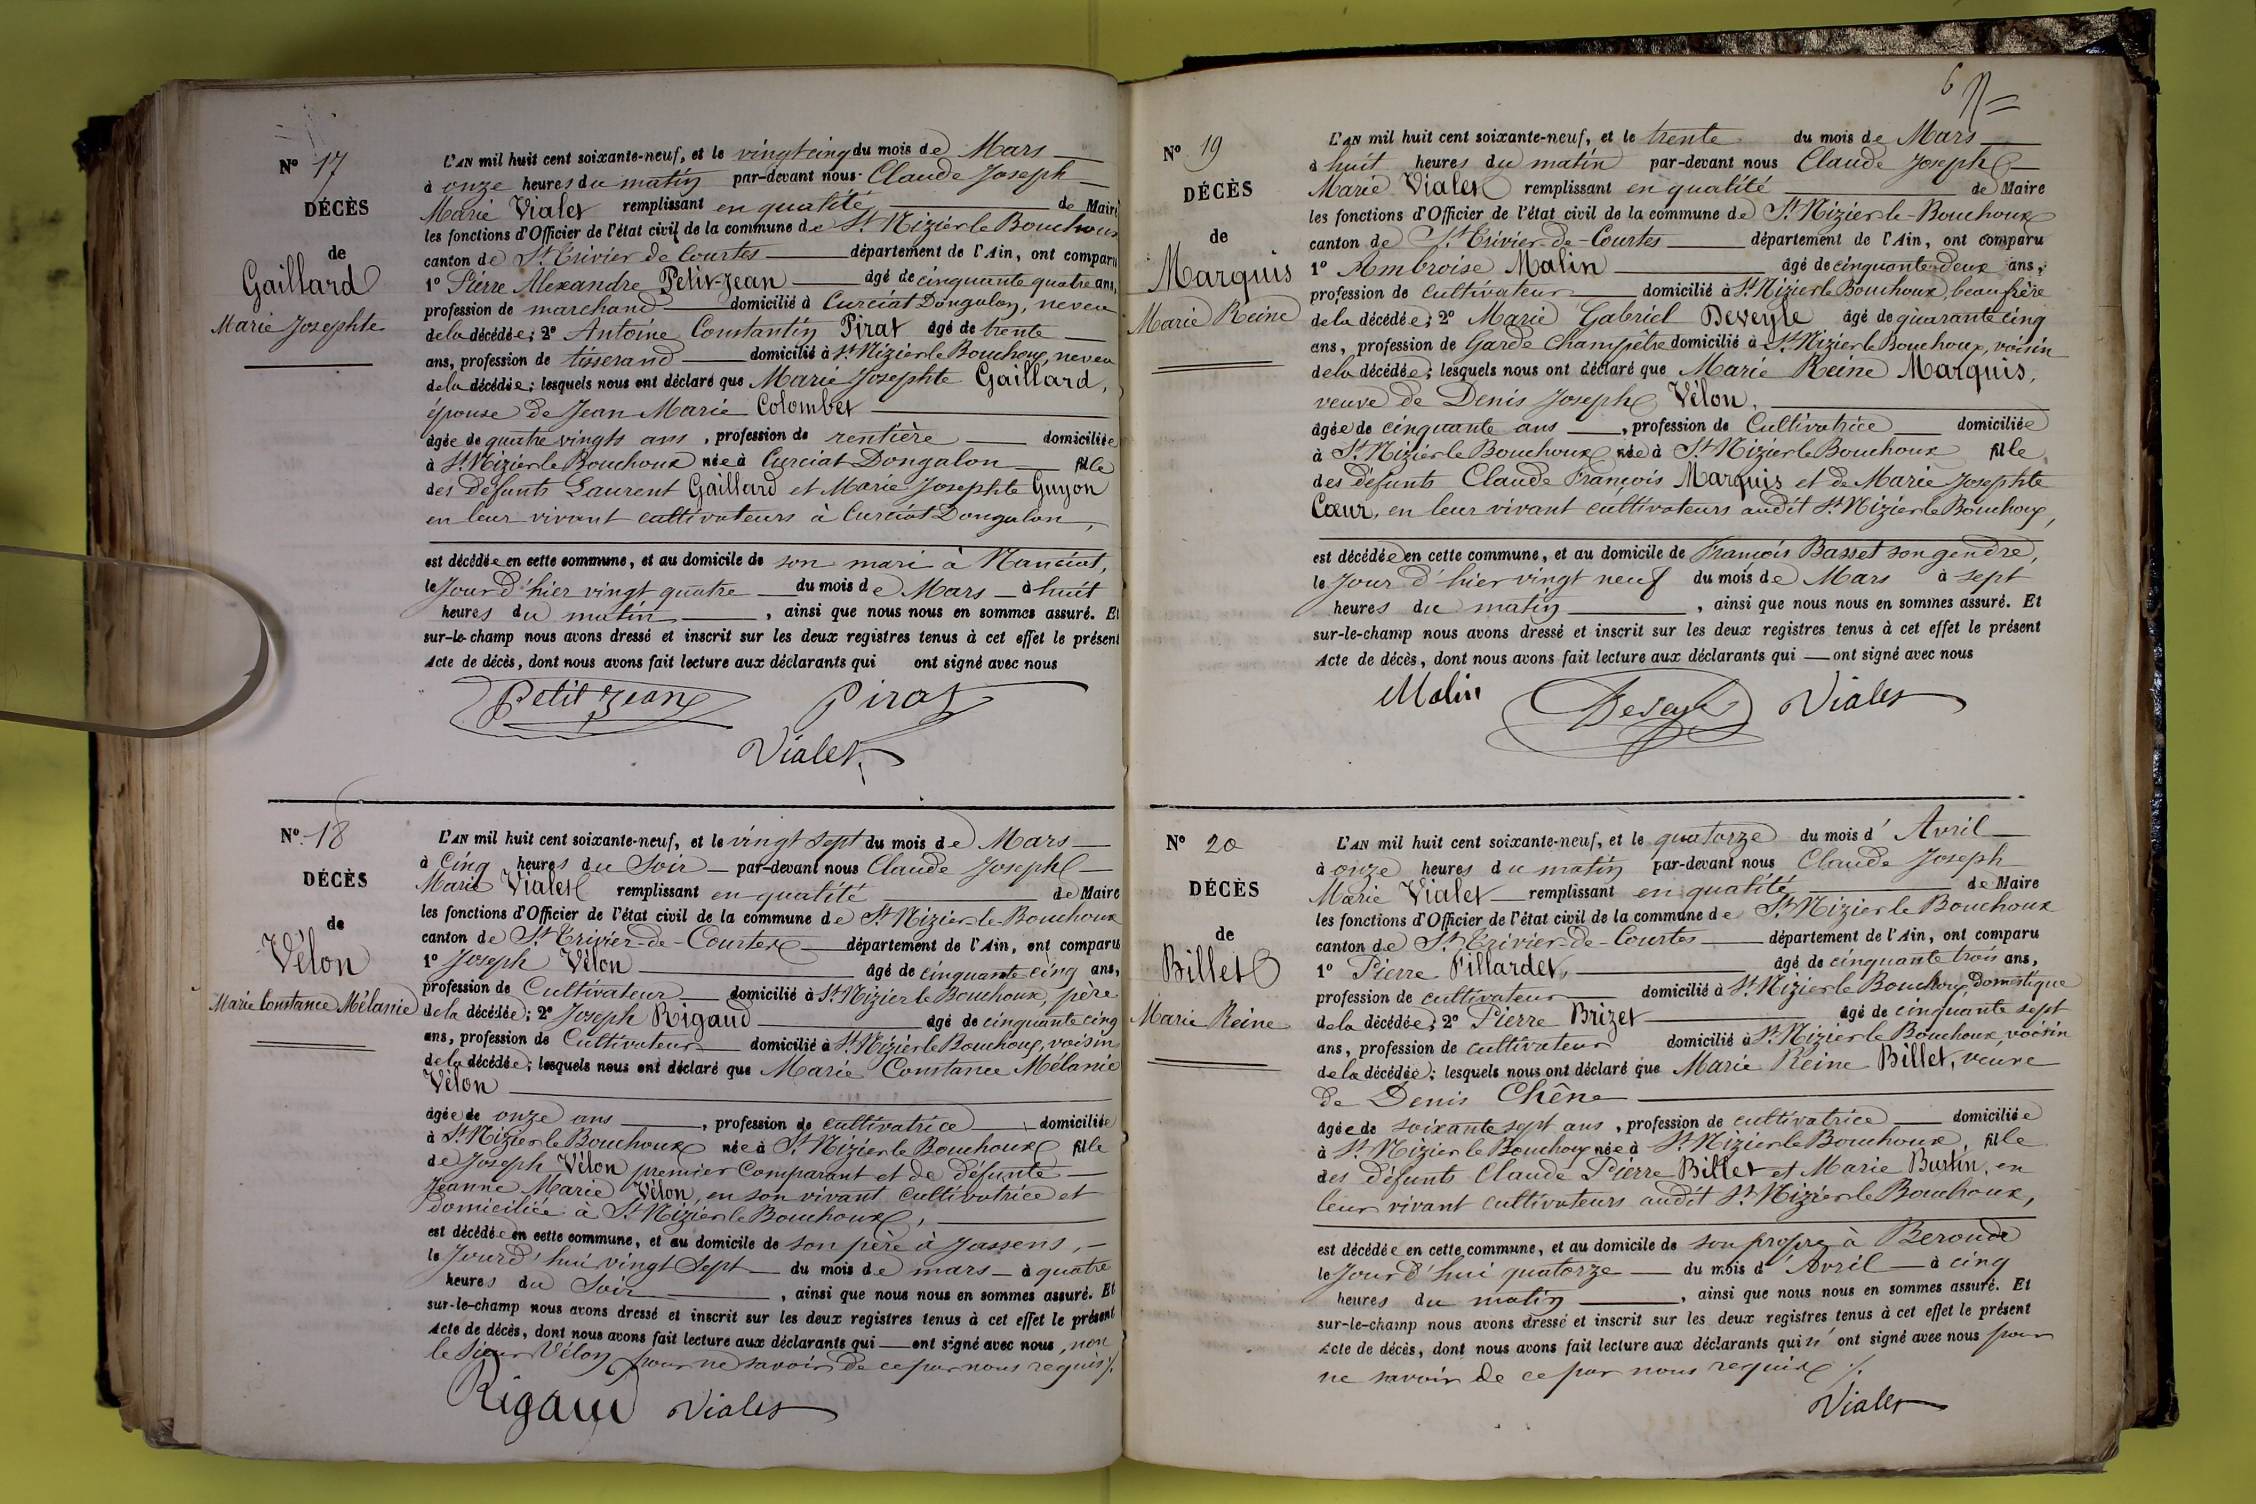 Nº 17
DÉCÈS
de
Gaillard
Marie Josephte
L'AN mil huit cent soixante-neuf, et le vingt cinq du mois de Mars
à onze heures du matin par-devant nous Claude Joseph
Marie Vialet remplissant en qualité de Maire
les fonctions d'Officier de l'état civil de la commune de St Nizier le Bouchoux
canton de St Trivier de Courtes département de l'Ain, ont comparu
1º Pierre Alexandre Petit-Jean âgé de cinquante quatre ans,
profession de marchand domicilié à Curciat Dongalon, neveu
de la décédée; 2º Antoine Constantin Pirat âgé de trente
ans, profession de tisserand domicilié à St Nizier le Bouchoux, neveu
de la décédée; lesquels nous ont déclaré que Marie Josephte Gaillard,
épouse de Jean Marie Colombet
âgée de quatre vingts ans, profession de rentière domiciliée
à St Nizier le Bouchoux née à Curciat Dongalon fille
des défunts Laurent Gaillard et Marie Josephte Guyon
en leur vivant cultivateurs à Curciat Dongalon,
est décédée en cette commune, et au domicile de son mari à Manciat,
le Jour d'hier vingt quatre du mois de Mars à huit
heures du matin, ainsi que nous nous en sommes assuré. Et
sur-le-champ nous avons dressé et inscrit sur les deux registres tenus à cet effet le présent
Acte de décès, dont nous avons fait lecture aux déclarants qui ont signé avec nous
Petit Jean Pirat
Vialet
Nº 18
DÉCÈS
de
Vélon
Marie Constance Mélanie
L'AN mil huit cent soixante-neuf, et le vingt sept du mois de Mars
à cinq heures du Soir par-devant nous Claude Joseph
Marie Vialet remplissant en qualité de Maire
les fonctions d'Officier de l'état civil de la commune de St Nizier-le-Bouchoux
canton de St Trivier-de-Courtes département de l'Ain, ont comparu
1º Joseph Vélon âgé de cinquante cinq ans,
profession de Cultivateur domicilié à St Nizier le Bouchoux, père
de la décédée; 2º Joseph Rigaud âgé de cinquante cinq
ans, profession de Cultivateur domicilié à St Nizier le Bouchoux, voisin
de la décédée; lesquels nous ont déclaré que Marie Constance Mélanie
Vélon
âgée de onze ans, profession de cultivatrice domiciliée
à St Nizier le Bouchoux née à St Nizier le Bouchoux fille
de Joseph Vélon premier Comparant et de défunte
Jeanne Marie Vélon, en son vivant cultivatrice et
domiciliée à St Nizier le Bouchoux,
est décédée en cette commune, et au domicile de son père à Jassens,
le Jourd'hui vingt Sept du mois de mars à quatre
heures du Soir, ainsi que nous nous en sommes assuré. Et
sur-le-champ nous avons dressé et inscrit sur les deux registres tenus à cet effet le présent
Acte de décès, dont nous avons fait lecture aux déclarants qui ont signé avec nous, non
le Sieur Vélon pour ne savoir de ce par nous requis ./.
Rigaud Vialet
6
Nº 19
DÉCÈS
de
Marquis
Marie Reine
L'AN mil huit cent soixante-neuf, et le trente du mois de Mars
à huit heures du matin par-devant nous Claude Joseph
Marie Vialet remplissant en qualité de Maire
les fonctions d'Officier de l'état civil de la commune de St Nizier-le-Bouchoux
canton de St Trivier-de-Courtes département de l'Ain, ont comparu
1º Ambroise Malin âgé de cinquante deux ans,
profession de cultivateur domicilié à St Nizier le Bouchoux, beau frère
de la décédée; 2º Marie Gabriel Deveyle âgé de quarante cinq
ans, profession de Garde Champêtre domicilié à St Nizier le Bouchoux, voisin
de la décédée; lesquels nous ont déclaré que Marie Reine Marquis,
veuve de Denis Joseph Vélon.
âgée de cinquante ans, profession de Cultivatrice domiciliée
à St Nizier le Bouchoux née à St Nizier le Bouchoux fille
des défunts Claude François Marquis et de Marie Josephte
Cœur, en leur vivant cultivateurs audit St Nizier le Bouchoux,
est décédée en cette commune, et au domicile de François Basset son gendre,
le Jour d'hier vingt neuf du mois de Mars à sept
heures du matin, ainsi que nous nous en sommes assuré. Et
sur-le-champ nous avons dressé et inscrit sur les deux registres tenus à cet effet le présent
Acte de décès, dont nous avons fait lecture aux déclarants qui ont signé avec nous
Malin Deveyle Vialet
Nº 20
DÉCÈS
de
Billet
Marie Reine
L'AN mil huit cent soixante-neuf, et le quatorze du mois d'Avril
à onze heures du matin par-devant nous Claude Joseph
Marie Vialet remplissant en qualité de Maire
les fonctions d'Officier de l'état civil de la commune de St Nizier le Bouchoux
canton de St Trivier-de-Courtes département de l'Ain, ont comparu
1º Pierre Fillardet, âgé de cinquante trois ans,
profession de cultivateur domicilié à St Nizier le Bouchoux, Domestique
de la décédée; 2º Pierre Brizet âgé de cinquante sept
ans, profession de cultivateur domicilié à St Nizier le Bouchoux, voisin
de la décédée; lesquels nous ont déclaré que Marie Reine Billet, veuve
de Denis Chêne
âgée de soixante sept ans, profession de cultivatrice domiciliée
à St Nizier le Bouchoux née à St Nizier le Bouchoux, fille
des défunts Claude Pierre Billet et Marie Burtin, en
leur vivant cultivateurs audit St Nizier le Bouchoux,
est décédée en cette commune, et au domicile de son propre à Beroude
le Jour d'hui quatorze du mois d'Avril à cinq
heures du matin, ainsi que nous nous en sommes assuré. Et
sur-le-champ nous avons dressé et inscrit sur les deux registres tenus à cet effet le présent
Acte de décès, dont nous avons fait lecture aux déclarants qui n'ont signé avec nous pour
ne savoir de ce par nous requis ./.
Vialet